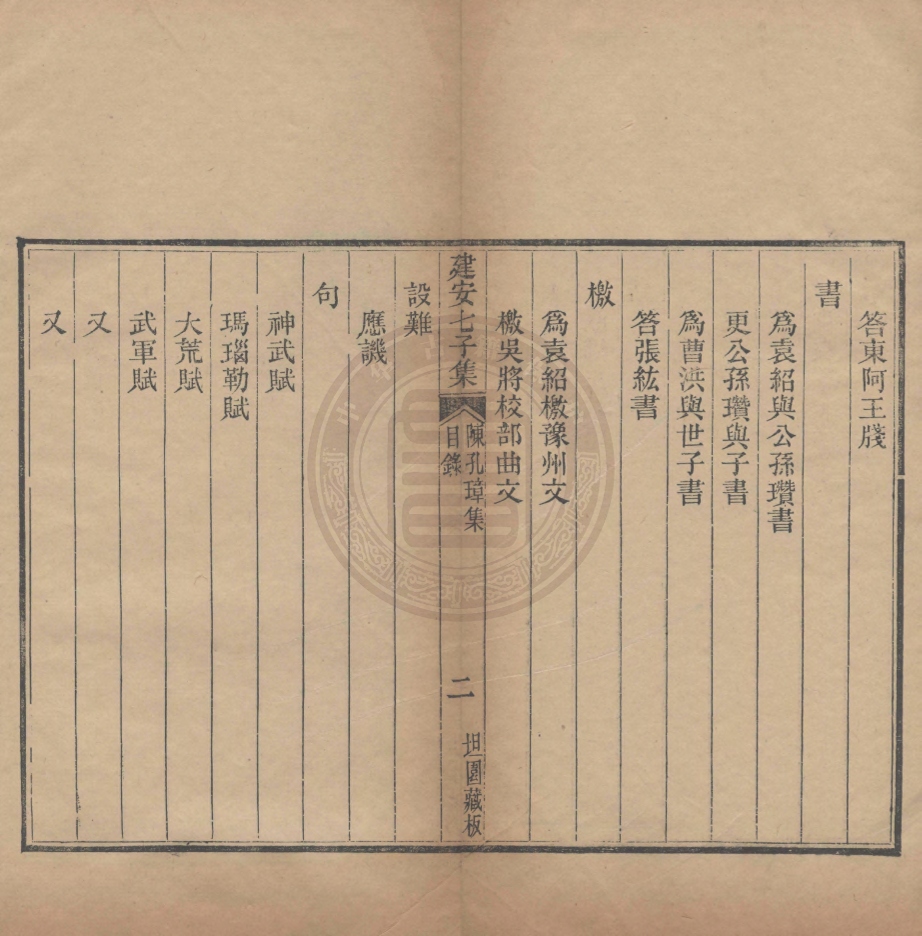 答東阿王牋
書
爲袁紹與公孫瓚書
更公孫瓚與子書
爲曹洪與世子書
答張紘書
檄
爲袁紹檄豫州文
檄吳將校部曲文
建安七子集
陳孔璋集
目錄
二
坦園藏板
設難
應譏
句
神武賦
瑪瑙勒賦
大荒賦
武軍賦
又
又